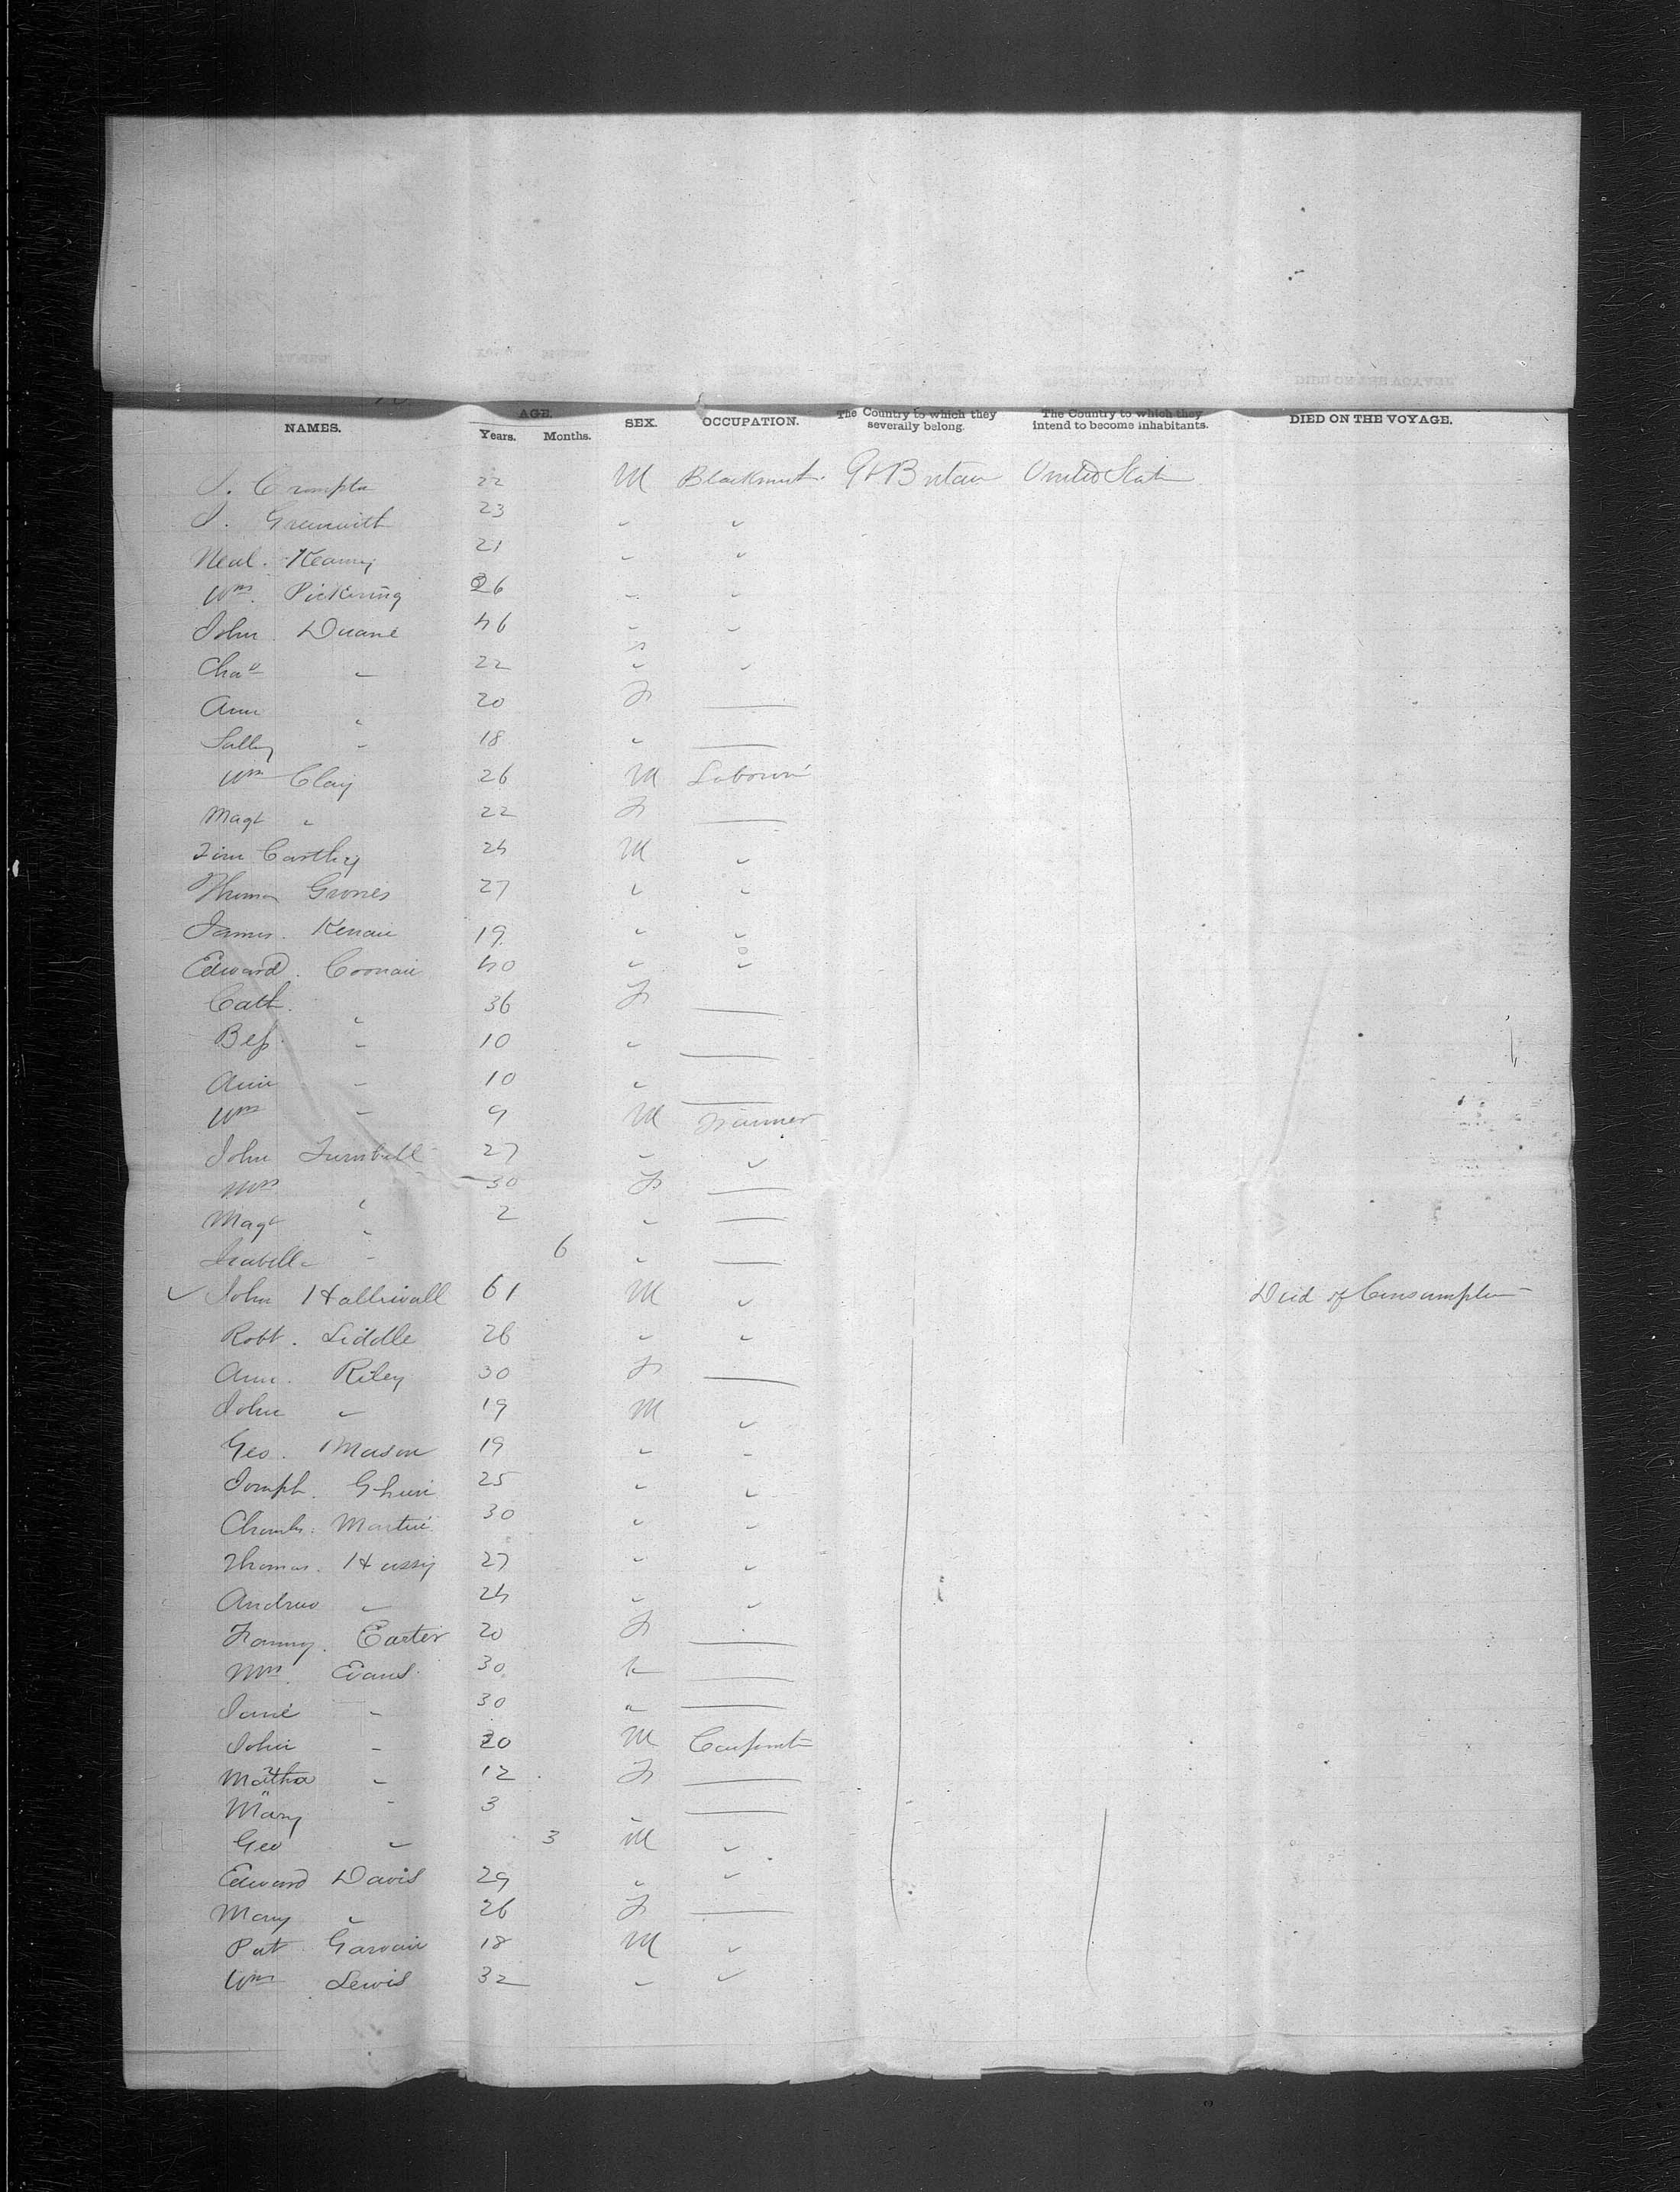 NAMES. AGE. Years. Months. SEX. OCCUPATION. The Country to which they severally belong. The Country to which they intend to become inhabitants. DIED ON THE VOYAGE.
J. Crompton 22 M Blacksmit. Gt Britain United States
J. 23 " "
Neal. Kearny 21 " "
Wm. Pickering 26 " "
John Duane 46 " "
Chas " 22 " "
Ann " 20 F —
Sally " 18 " —
Wm Clay 26 M Labourer
Magt " 22 F —
Tim Carthy 24 M "
Thomas 27 " "
James. 19 " "
Edward. 40 " "
Cath. " 36 F —
Bess " 10 " —
Ann " 10 " —
Wm " 9 M Farmer
John Turnbull 27 " "
Mrs " 30 F —
Magt " 2 " —
Isabella " 6 " —
✓ John Halliwall 61 M " Died of Consumption
Robt. Liddle 26 " "
Ann. Riley 30 F —
John " 19 M "
Geo. Mason 19 " "
Joseph. 25 " "
Charls. Martin 30 " "
Thomas. Hussy 27 " "
Andrew " 24 " "
Fanny. Carter 20 F —
Mrs. Evans 30 " —
Jane " 30 " —
John " 20 M Carpenter
Martha " 12 F —
Mary " 3 " —
Geo " 3 M "
Edward Davis 29 " "
Mary " 26 F —
Pat Garvain 18 M "
Wm Lewis 32 " "